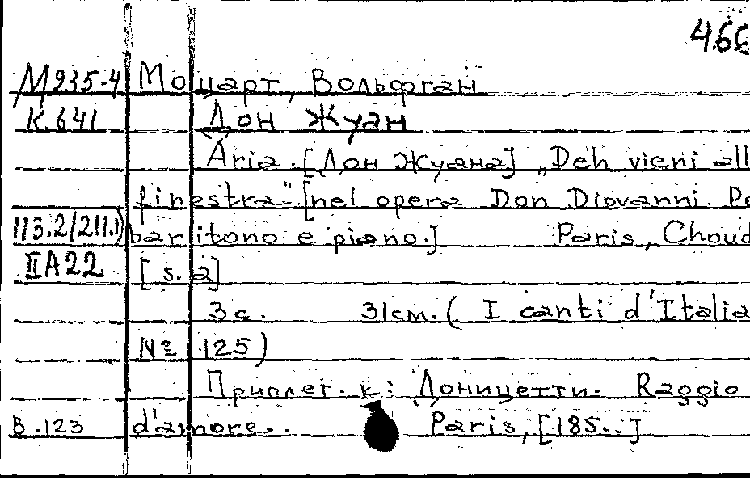 466
М935-4 Моцарт, Вольфган
К.641 Дон Жуан
Aria. [Дон Жуана] „Deh vieni all
finestra" [nel opera Don Diovanni Pe
113.2/211.1) baritono e piano.] Paris, Choud
II A22 [s. a]
3 с. 31см. ( I canti d'Italia
№ 125)
Приплет. к: Доницетти. Raggio
В.123 d'amore.. Paris, [185..]